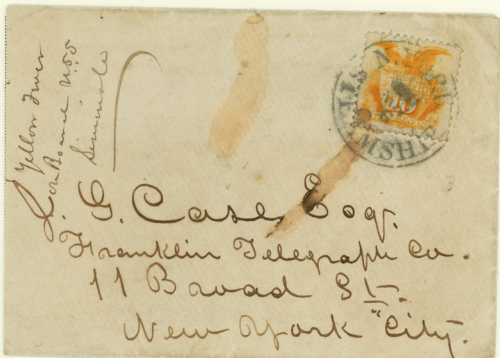 Yellow Fever
on Board U.S.S
Seminole
J. G. Case Esq.
Franklin Telegraph Co.
11 Broad St.
New York City.
N.Y.
STEAMSHIP
10